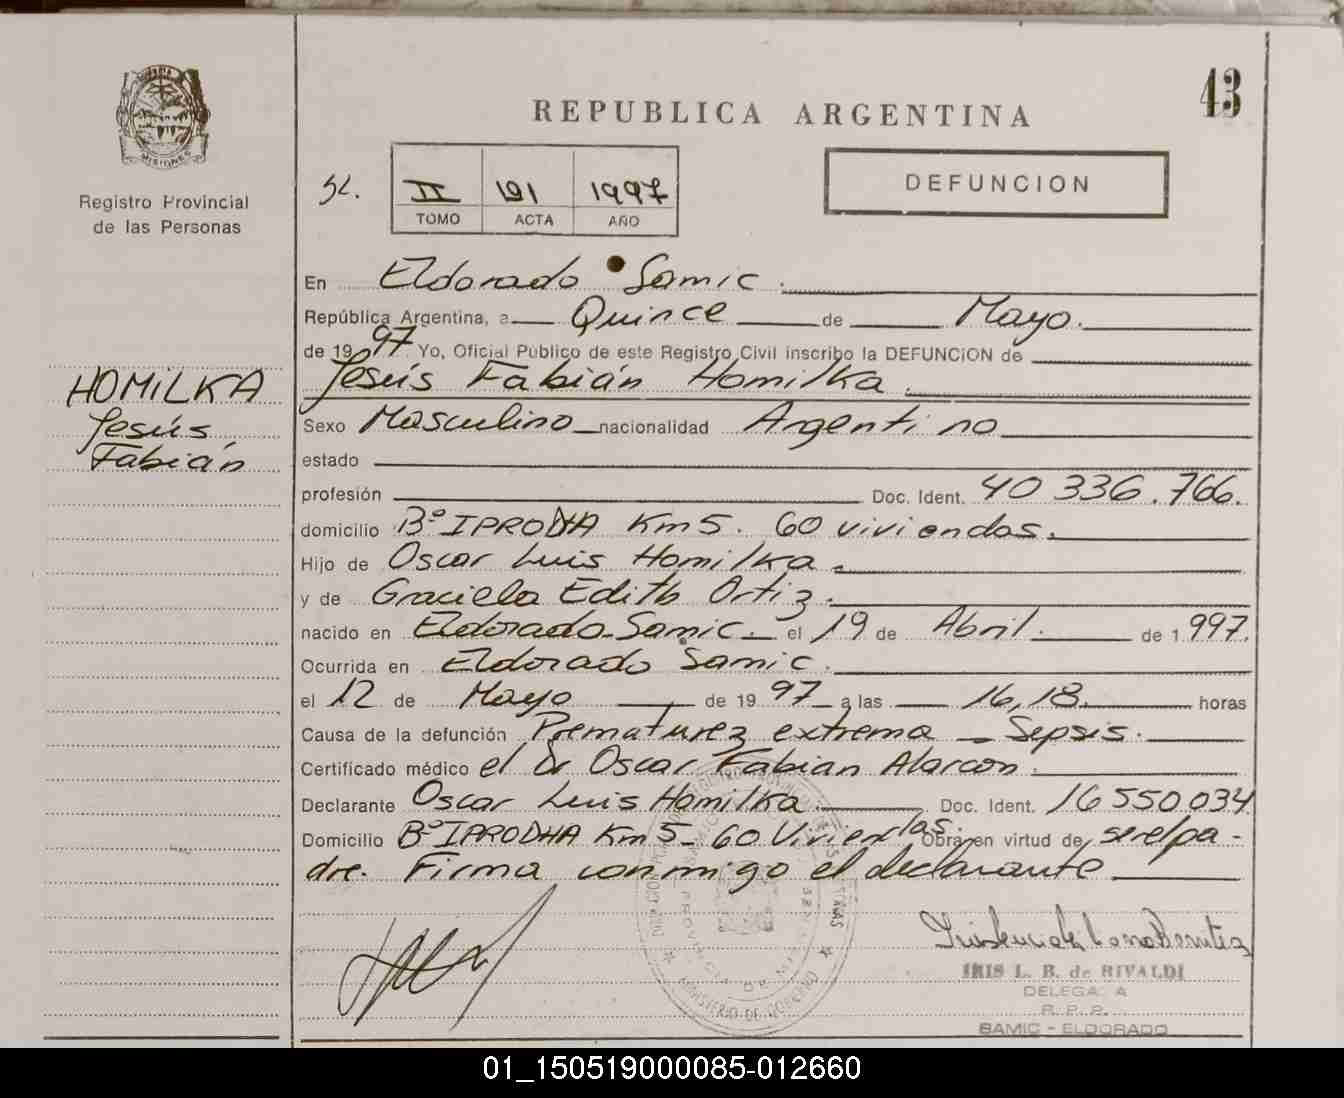 43
REPUBLICA ARGENTINA
MISIONES
Registro Provincial
de las Personas
II 191 1997
TOMO ACTA AÑO
DEFUNCION
En Eldorado Samic.
República Argentina, a Quince de Mayo.
de 1997. Yo, Oficial Público de este Registro Civil inscribo la DEFUNCION de
HOMILKA
Jesús
Fabián
Jesús Fabián Homilka.
Sexo Masculino nacionalidad Argentino
estado
profesión Doc. Ident. 40 336.766.
domicilio Bº IPRODHA Km 5. 60 viviendas.
Hijo de Oscar Luis Homilka.
y de Graciela Edith Ortiz.
nacido en Eldorado-Samic. el 19 de Abril. de 1.997.
Ocurrida en Eldorado Samic.
el 12 de Mayo de 1997 a las 16,18. horas
Causa de la defunción Prematurez extrema - Sepsis.
Certificado médico el Dr Oscar Fabian Alarcon.
Declarante Oscar Luis Homilka. Doc. Ident. 16 550 034
Domicilio Bº IPRODHA Km 5 - 60 Viviendas. Obra en virtud de ser el pa-
dre. Firma conmigo el declarante
MINISTERIO DE GOBIERNO
PROVINCIA DE MISIONES
IRIS L. B. de RIVALDI
DELEGADA
R. P. P.
SAMIC - ELDORADO
01_150519000085-012660